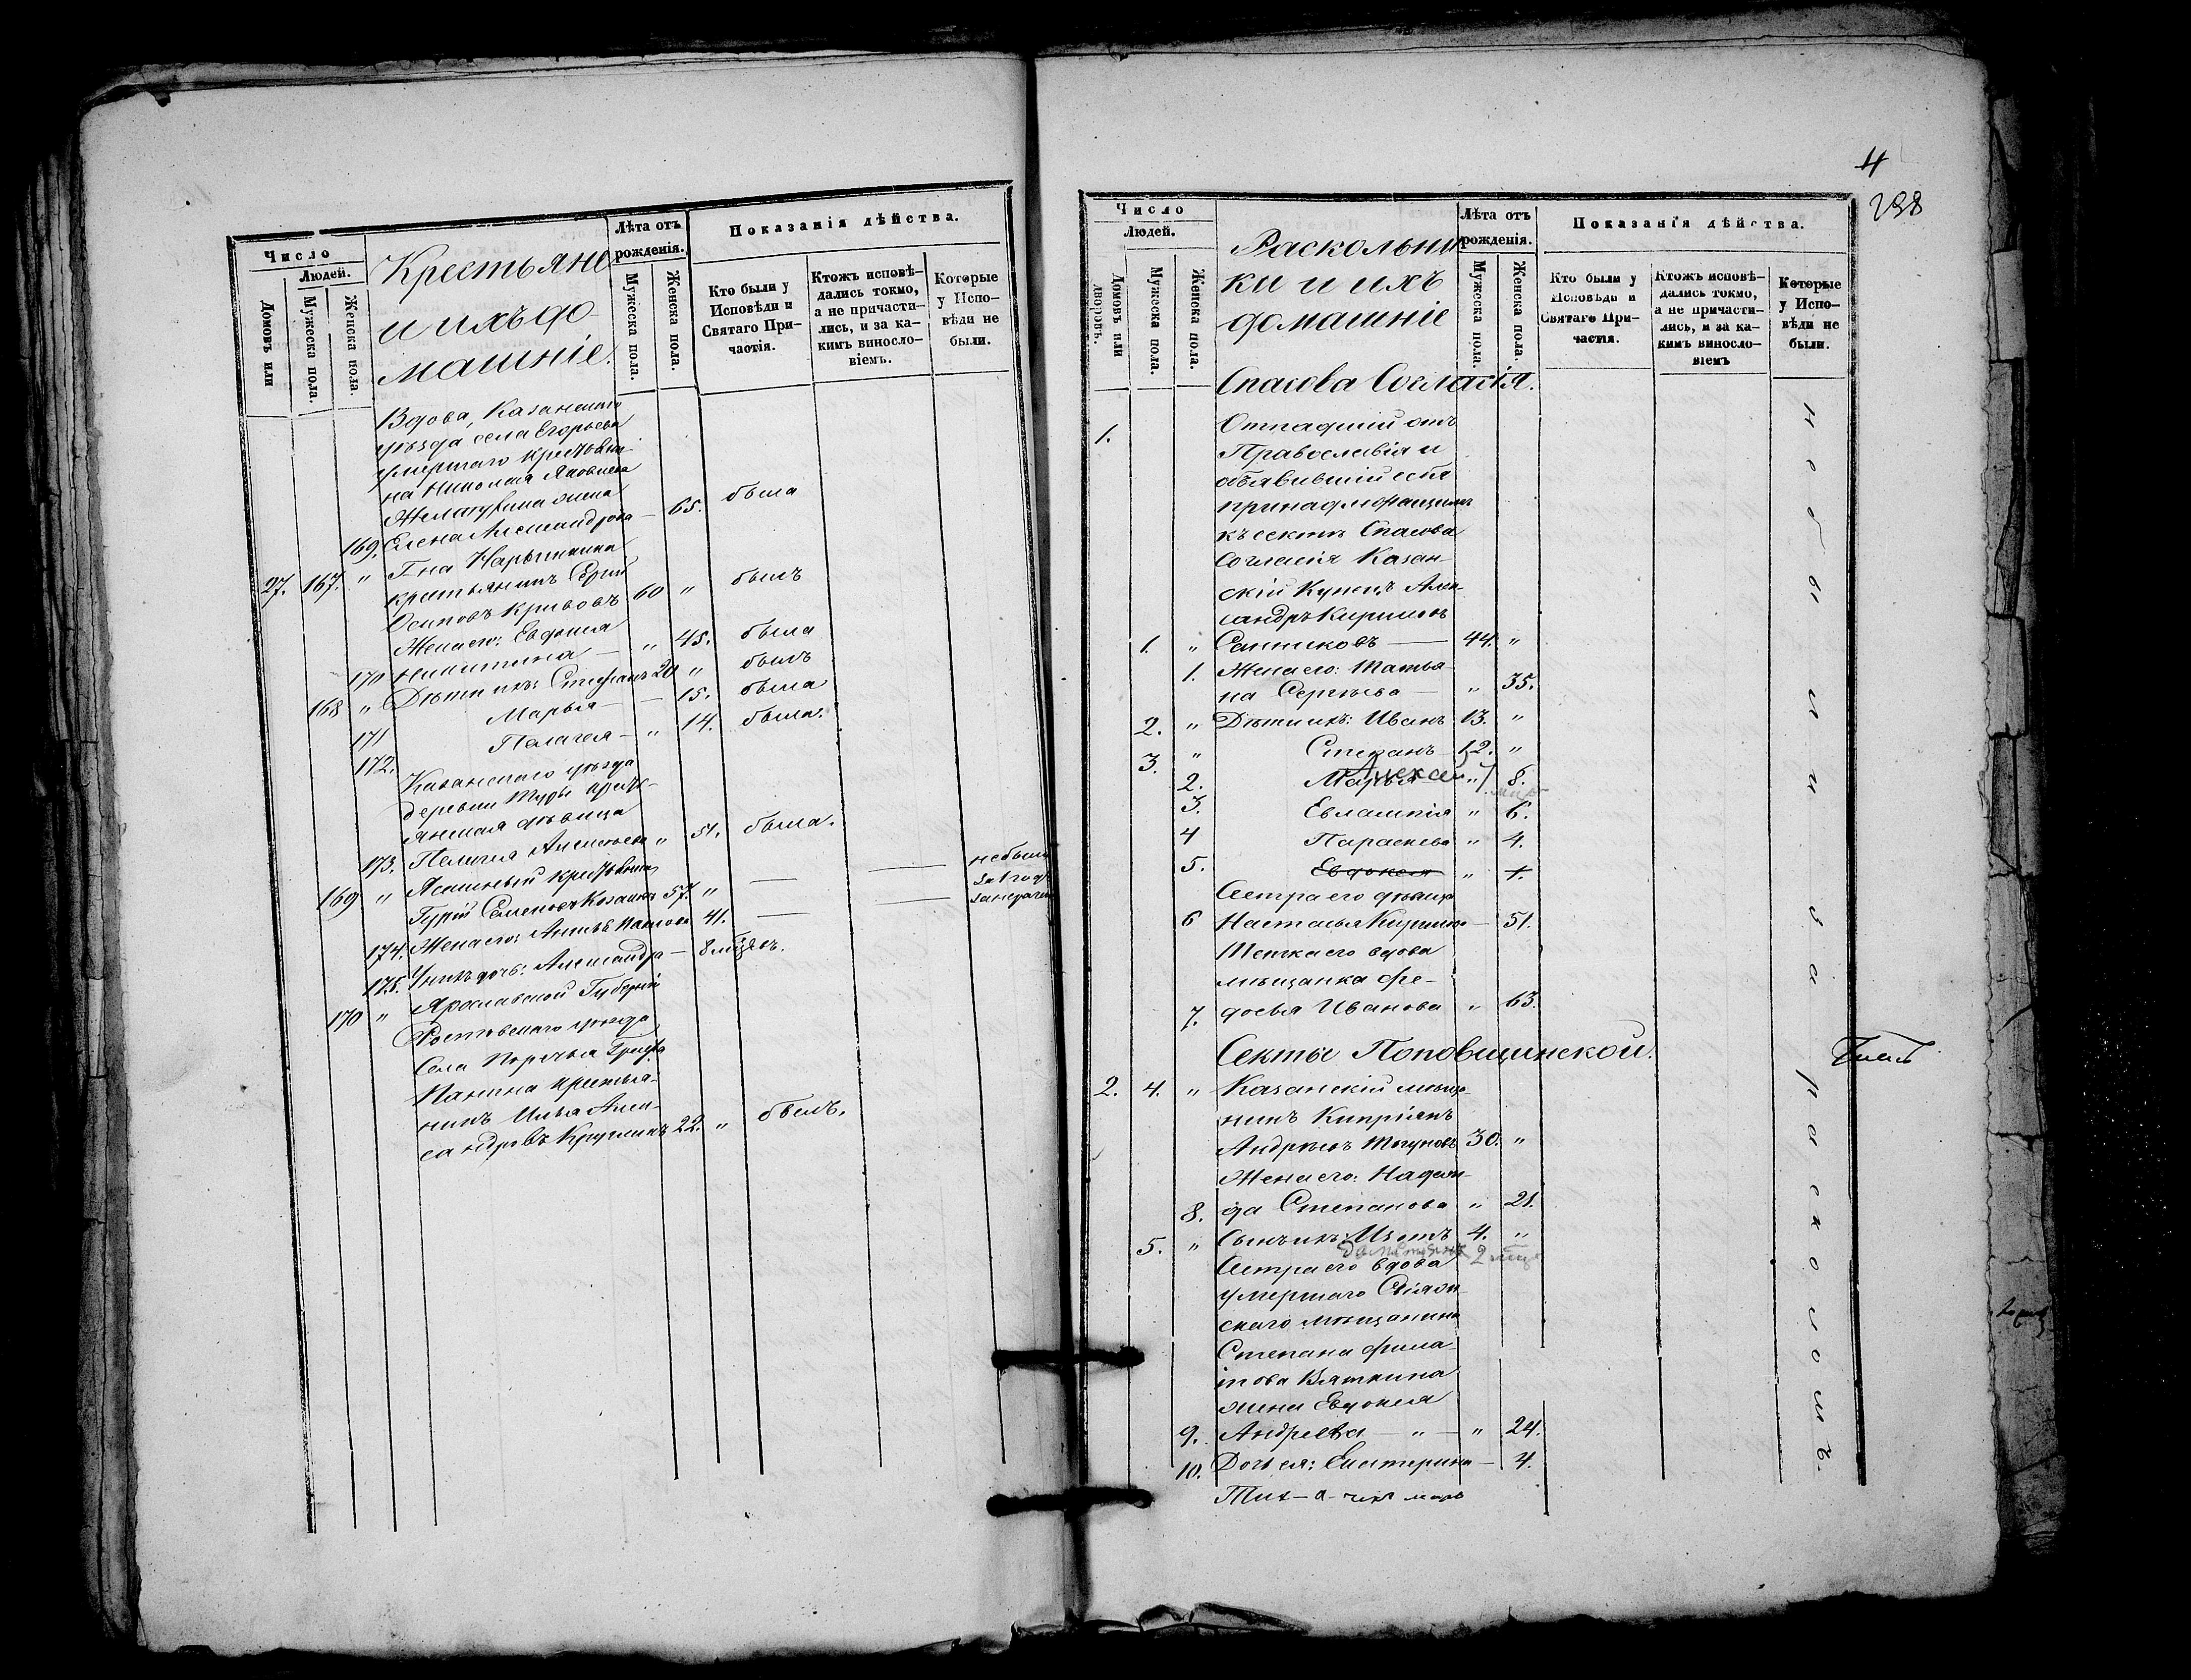 Число
Людей.
Домовъ или
Мужеска пола.
Женска пола.
Крестьяне
и ихъ до-
машніе.
Лѣта отъ
рожденія.
Мужеска пола.
Женска пола.
Показанія дѣйства.
Кто были у
Исповѣди и
Святаго При-
частія.
Ктожъ исповѣ-
дались токмо,
а не причасти-
лись, и за ка-
кимъ винослов-
іемъ.
Которые
у Испо-
вѣди не
были.
Вдова, Казанскаго
уѣзда села Егорьева
умершаго крестьяни-
на Николая Яковлева
жена
169. Елена Александрова — 65. была
Г-на Нарышкина
27. 167. " крестьянинъ Сергій
Осиповъ Кривовъ 60 " былъ
Жена его: Евдокия
170 Никитина — " 45. была
168 " Дѣти ихъ: Стефанъ 20 " былъ
171 Марья — — 15. была
172. Пелагея — " 14. была.
Казанскаго уѣзда
деревни крестъ-
янская дѣвица
173. Пелагея Алексѣева " 51. была.
169 " Ясашный крестьянинъ
Гурій Семеновъ 57. " — — не были
174. Жена его: Анна Павлова 41. — —
175. У нихъ дочь: Александра — 8 мѣсяц.
170 " Ярославской Губерніи
Ростовскаго уѣзда
Села Порѣчья Графа
Панина крестья-
нинъ Илья Алек-
сандровъ Кругликъ 22. " былъ.
4
238
Число
Людей.
Домовъ или
дворовъ.
Мужеска пола.
Женска пола.
Раскольни
ки и ихъ
домашніе
Лѣта отъ
рожденія.
Мужеска пола.
Женска пола.
Показанія дѣйства.
Кто были у
Исповѣди и
Святаго При-
частія.
Ктожъ исповѣ-
дались токмо,
а не причасти-
лись, и за ка-
кимъ винослов-
іемъ
Которые
у Испо-
вѣди не
были.
Спасова Согласія.
1. Отпадшій отъ
Православія и
объявившій себя
принадлежащимъ
къ сектѣ Спасова
Согласія Казан-
скій Купецъ Алек-
сандръ Кириловъ
1. " Санниковъ — 44. "
1. Жена его: Татья-
на Сергѣева — " 35.
2. " Дѣти ихъ: Иванъ 13. "
3. " Степанъ 12. "
Алексѣй
2. Марья " 8.
3. Евлампія " 6.
4 Параскева " 4.
5. Евдокея " 1.
Сестра его дѣвица
6 Настасья Кирилова — 51.
Тетка его вдова
мѣщанка Фе-
7. досья Иванова " 63.
Секты Поповщинской.
2. 4. " Казанскій мѣща-
нинъ Кипріянъ
Андреевъ 30. "
Жена его: Надеж-
8. да Степанова " 21.
5. " Сынъ ихъ: 4. "
2 мѣс
Сестра его вдова
умершаго Свіяж-
скаго мѣщанина
Степана Фила-
това Вяткина
жена Евдокея
9. Андреева — " — " 24.
10. Дочь ея: Екатерина — 4.
не были за расколомъ.